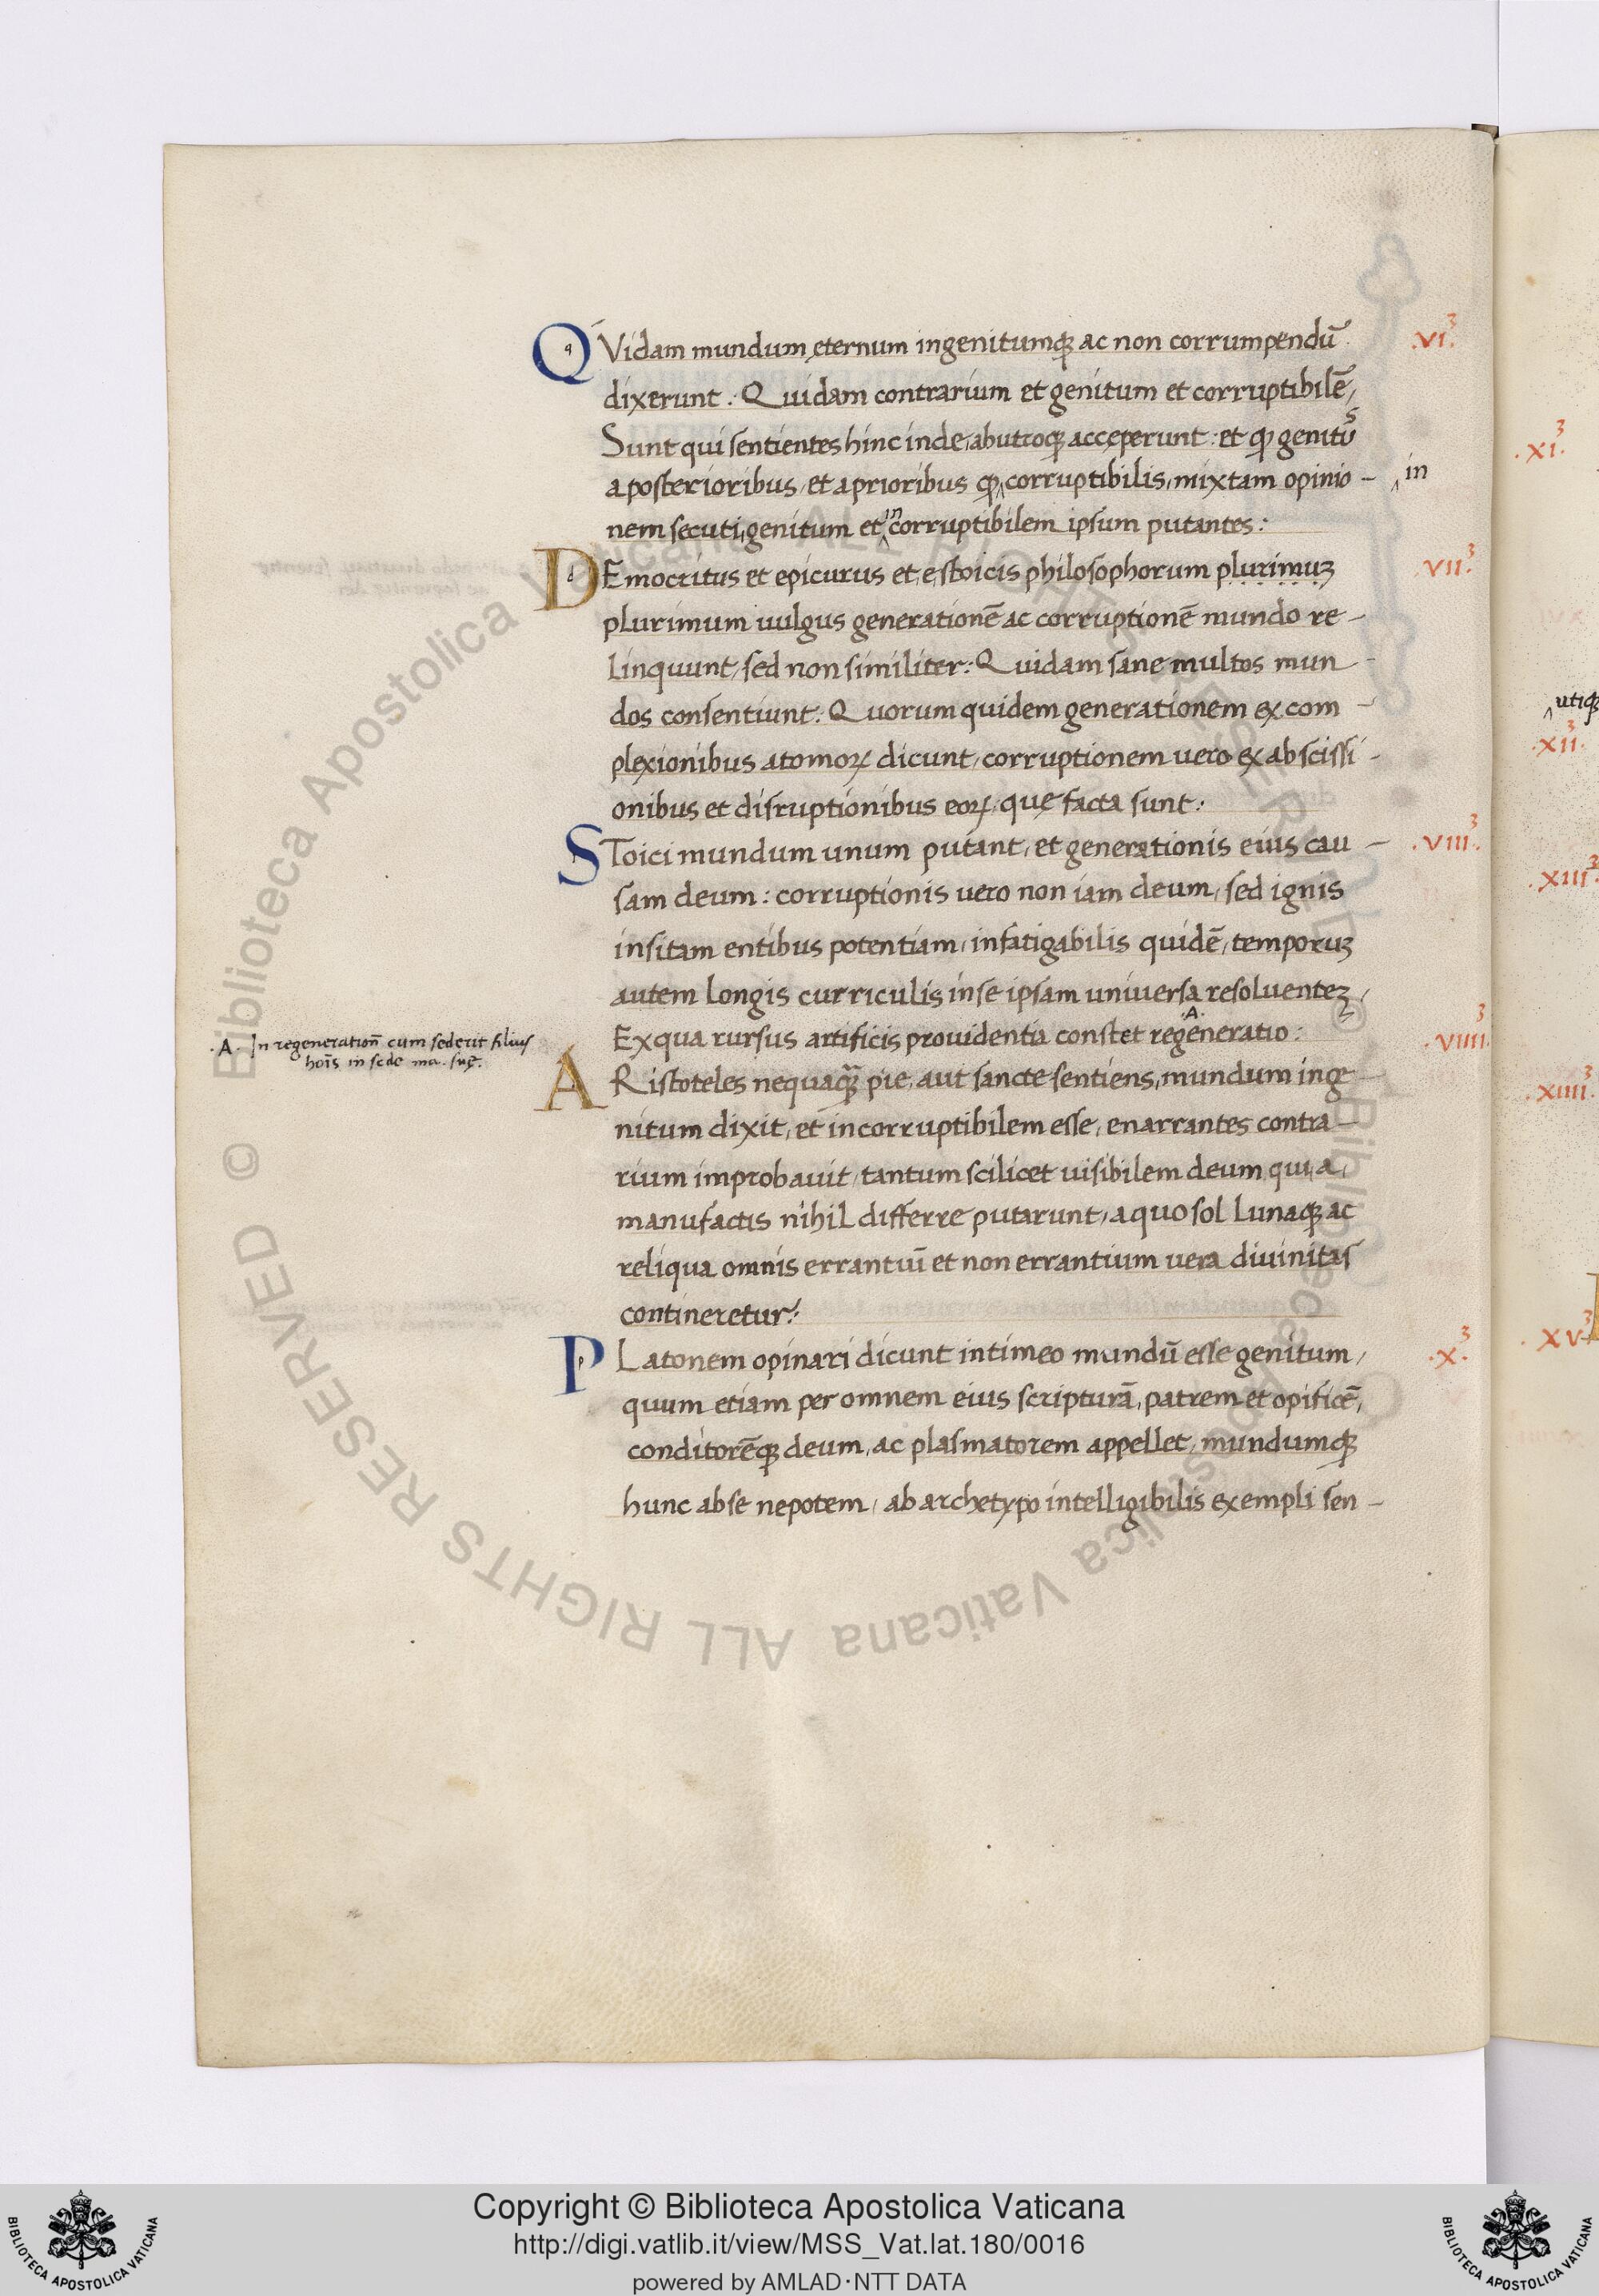 QVidam mundum ęternum ingenitumqꝫ ac non corrumpendū .VI.³
dixerunt. Quidam contrarium et genitum et corruptibilē,
Sunt qui sentientes hinc inde, abutroqꝫ acceperunt: et ꝙ genitūs
a posterioribus, et aprioribus ꝙ ‸corruptibilis, mixtam opinio - ‸in
nem secuti, genitum et ‸in corruptibilem ipsum putantes:
DEmocritus et epicurus et, e, stoicis philosophorum plurimuꝫ .VII.³
plurimum uulgus generationē ac corruptionē mundo re -
linquunt, sed non similiter: Quidam sane multos mun -
dos consentiunt: Quorum quidem generationem ex com -
plexionibus atomoꝝ dicunt, corruptionem uero ex abscissi -
onibus et disruptionibus eoꝝ, quę facta sunt:
SToici mundum unum putant, et generationis eius cau - .VIII.³
sam deum: corruptionis uero non iam deum, sed ignis
insitam entibus potentiam, infatigabilis quidē, temporuꝫ
autem longis curriculis inse ipsam uniuersa resoluenteꝫ,
.A.
Ex qua rursus artificis prouidentia constet regeneratio: .VIIII.³
.A. In regeneration̄ cum sederit filius
hoīs in sede ma. suę.
ARistoteles nequaqꝫ̄ pie, aut sancte sentiens, mundum inge -
nitum dixit, et incorruptibilem esse, enarrantes contra -
rium improbauit, tantum scilicet uisibilem deum qui, a,
manufactis nihil differre putarunt, a quo sol Lunaqꝫ ac
reliqua omnis errantiū et non errantium uera diuinitas
contineretur:
PLatonem opinari dicunt intimeo mundū esse genitum, .X.³
quum etiam per omnem eius scripturā, patrem et opificē,
conditorēqꝫ deum, ac plasmatorem appellet, mundumqꝫ
hunc abse nepotem, ab archetypo intelligibilis exempli sen -
.XI.³
‸utiqꝫ
.XII.³
.XIII.³
.XIIII.³
.XV.³
© Biblioteca Apostolica Vaticana ALL RIGHTS RESERVED
© Biblioteca Apostolica Vaticana ALL RIGHTS RESERVED
Copyright © Biblioteca Apostolica Vaticana
http://digi.vatlib.it/view/MSS_Vat.lat.180/0016
powered by AMLAD·NTT DATA
BIBLIOTECA APOSTOLICA VATICANA
BIBLIOTECA APOSTOLICA VATICANA